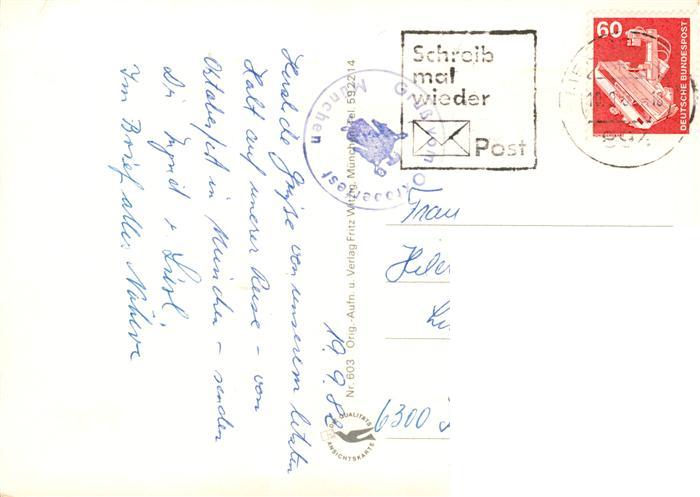 19.9.82
Herzliche Grüße von unserem letzten
Halt auf unserer Reise - vom
Oktoberfest in München - senden
Dir Sigrid + Liesl.
Im Brief alles Nähere
Nr. 603 Orig.-Aufn. u. Verlag Fritz Witzig, München, Tel. 592214
QUALITÄTS
ANSICHTSKARTE
Gruß vom Oktoberfest
München
Schreib
mal
wieder
Post
60
DEUTSCHE BUNDESPOST
Frau
6300